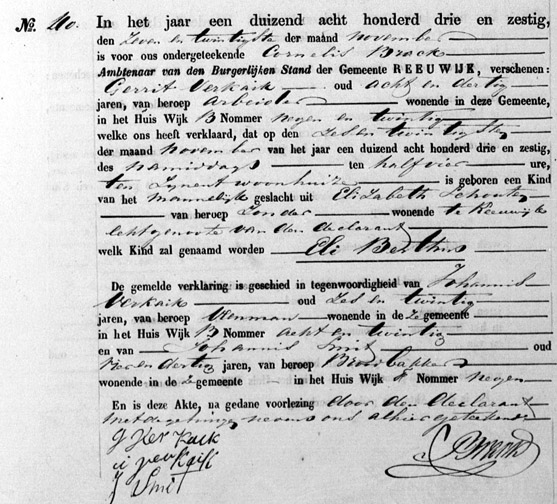 No. 40. In het jaar een duizend acht honderd drie en zestig,
den Zeven en twintigste der maand november
is voor ons ondergeteekende Cornelis Brack
Ambtenaar van den Burgerlijken Stand der Gemeente REEUWIJK, verschenen:
Gerrit Verkaik oud acht en dertig
jaren, van beroep arbeider wonende in deze Gemeente,
in het Huis Wijk B Nommer negen en twintig
welke ons heeft verklaard, dat op den Zes en twintigsten
der maand november van het jaar een duizend acht honderd drie en zestig,
des namiddags ten half vier ure,
ten Zijnent woonhuize is geboren een Kind
van het mannelijke geslacht uit Elizabeth Schouten
van beroep Zonder wonende te Reeuwijk
echtgenoote van den declarant
welk Kind zal genaamd worden Eli
De gemelde verklaring is geschied in tegenwoordigheid van Johannis
Verkaik oud Zes en twintig
jaren, van beroep wonende in deze gemeente
in het Huis Wijk B Nommer acht en twintig
en van Johannis Smit oud
dertig jaren, van beroep Broodbakker
wonende in deze gemeente in het Huis Wijk Nommer negen
En is deze Akte, na gedane voorlezing door den declarant
met de getuigen nevens ons alhier geteekend
G Ver Kaik
J Smit